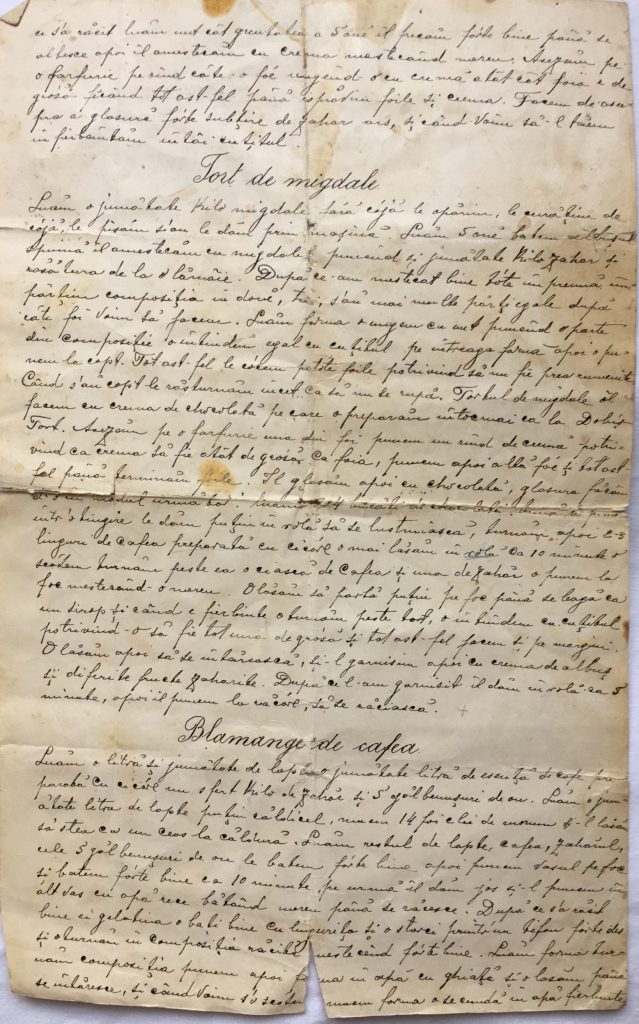 ce s'a răcit luăm unt cât greutatea a 5 ouĕ il frecăm fórte bine până se
albesce apoi il amestecăm cu crema mestecând mereu. Așezăm pe
o farfurie pe rînd câte-o fóe ungend-o cu cremă atât cât foia e de
grósă făcênd tot ast-fel până isprăvim foile și crema. Facem de-asu-
pra o glasură fórte subțire de zahar ars, și când voim să-l tăem
infierbêntăm întâi cuțitul.
Tort de migdale
Luăm o jumătate kilo migdale fără cójă le opărim, le curățim de
cójă, le pisăm s'au le dăm prin mașină. Luăm 5 ouĕ batem albușul
spumă il amestecăm cu migdale punênd și jumătate kilo zahar și
rasătura de la o lămâie. După ce-am mestecat bine tóte impreună im-
părțim compoziția in douĕ, trei, s'au mai multe părți egale după
câte foi voim să facem. Luăm forma o ungem cu unt punênd o parte
din compoziție o intindem egal cu cuțitul pe intreaga forma apoi o pu-
nem la copt. Tot ast-fel le cócem pe tóte foile potrivind să nu fie prea rumenite
Când s'au copt le răsturnăm incet ca să nu se rupă. Tortul de migdale il
facem cu crema de chocolată pe care o preparăm intocmai ca la Dobos
Tort. Așezăm pe o farfurie una din foi punem un rînd de cremă potri-
vind ca crema să fie atât de grósă ca foia, punem apoi altă fóe și tot ast-
fel până terminăm foile. Il glasăm apoi cu chocolată, glasura făcăm
o in modul următor: Luăm 4 bucăți de
intr'o tingire le dăm puțin in rolă să se lustruiască, turnăm apoi 2-3
linguri de cafea preparată cu cicóre o mai lăsăm in rolă ca 10 minute o
scótem turnăm peste ea o ciască de cafea și una de zahăr o punem la
foc mestecând-o mereu. O lăsăm să fiarbă puțin pe foc până se légă ca
un sirop și când e fierbinte o turnăm peste tort, o intindem cu cuțitul
potrivind-o să fie tot una de grósă și tot ast-fel facem și pe margini.
O lăsăm apoi să se intărească, și-l garnisim apoi cu crema de albuș
și diferite fructe zaharite. După ce l-am garnisit il dăm in rolă ca 5
minute, apoi il punem la răcóre, să se răciască.
Blamange de cafea
Luăm o litră și jumătate de lapte o jumătate litră de esență de cafe pre-
parată cu cicóre un sfert kilo de zahăr și 5 gălbenușuri de ou. Luăm o jum-
ătate litra de lapte puțin căldicel, muem 14 foi clei de morun și-l lăsăm
să stea ca un ceas la căldură. Luăm restul de lapte, cafea, zahărul,
cele 5 gălbenușuri de ou le batem fórte bine apoi punem vasul pe foc
și batem fórte bine ca 10 minute, pe urmă il dăm jos și-l punem in
alt vas cu apă rece bătând mereu până se răcesce. După ce s'a răcit
bine ei gelatina o bați bine cu lingurița și o storci printr'un tifon fórte des
și o turnăm in compoziția răcită mestecênd fórte bine. Luăm forma tur-
năm compoziția punem apoi forma in apă cu ghiață și o lăsăm până
se intăresce, și când voim s'o scótem muem forma o secundă in apă fierbinte